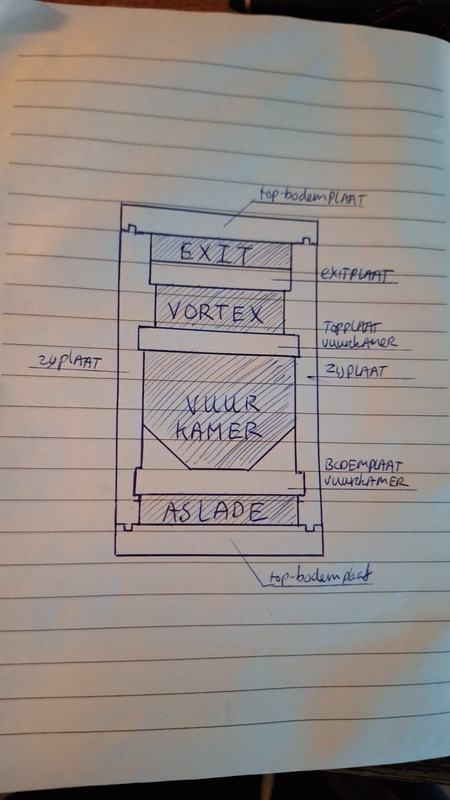 top-bodemPLAAT
EXIT
EXITPLAAT
VORTEX
TOPPLAAT
VUURKAMER
ZYPLAAT
ZIJPLAAT
VUUR
KAMER
BODEMPLAAT
VUURKAMER
ASLADE
top-bodemplaat